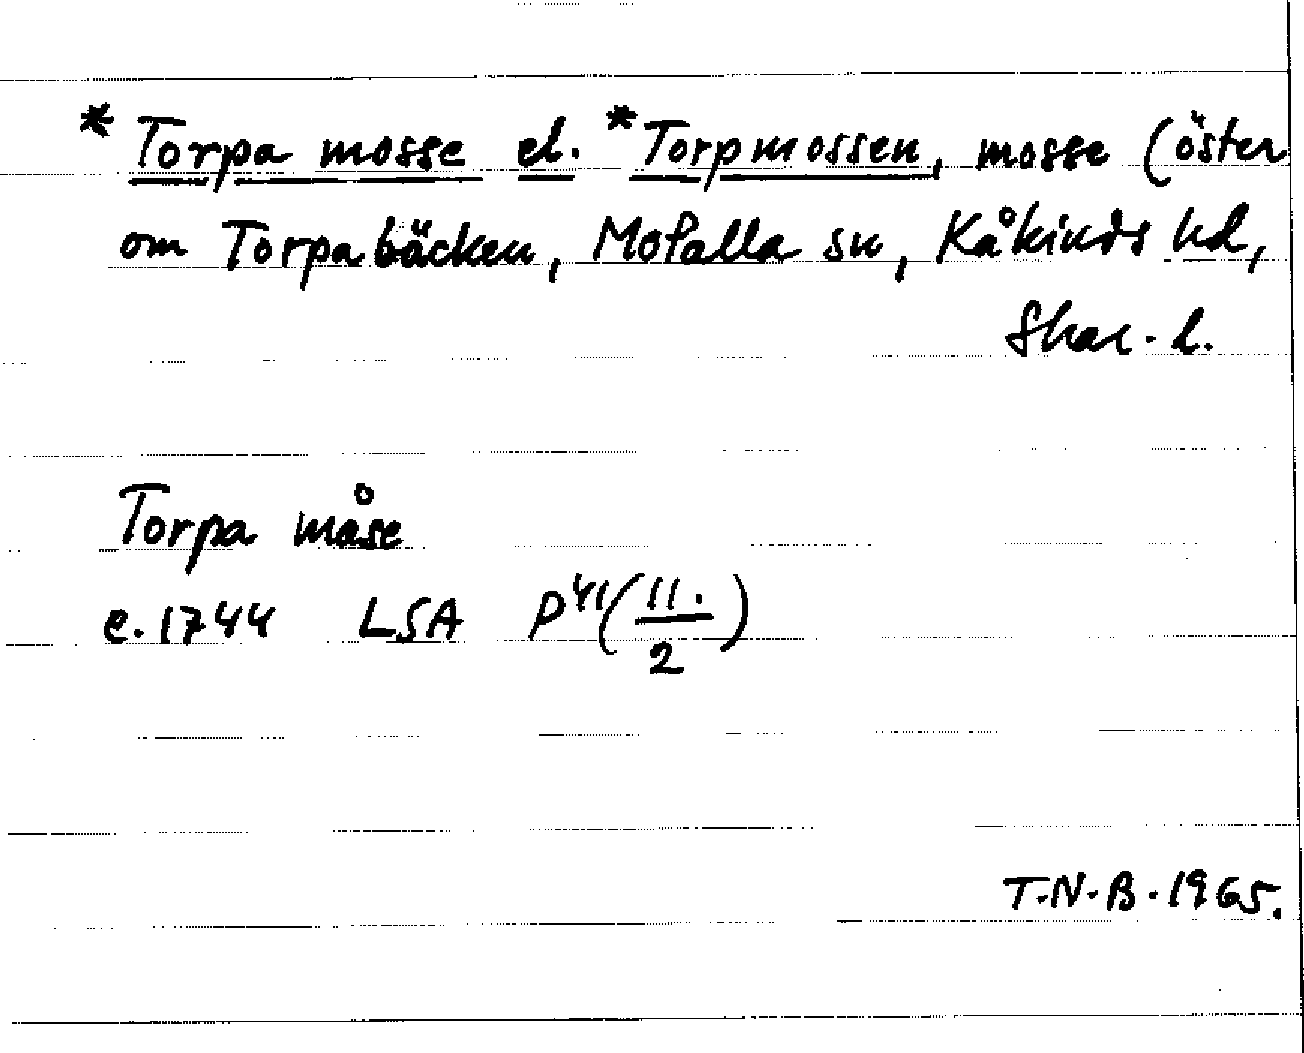 * Torpa mosse el. * Torpmossen, mosse (öster
om Torpabäcken, Mofalla sn, Kåkinds hd,
Skar. l.
Torpa måse
c. 1744 LSA P41 (11./2)
T.N.B. 1965.